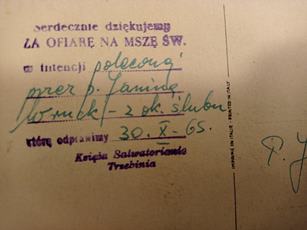 Serdecznie dziękujemy
ZA OFIARĘ NA MSZĘ ŚW.
w intencji poleconą
przez p. Janinę
- z ok. ślubu
którą odprawimy 30.X-65.
Księża Salwatorianie
Trzebinia
PRINTED IN ITALY
P. J